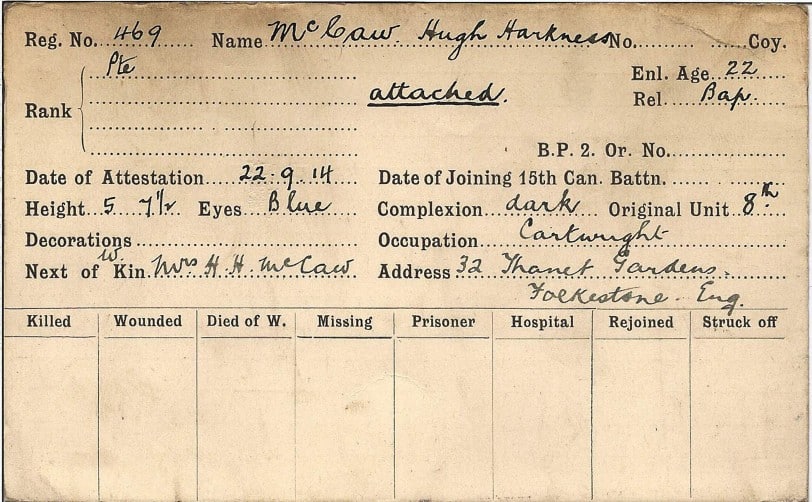 Reg. No. 469 Name McCaw. Hugh Harkness No. Coy.
Pte Enl. Age 22
Rank attached. Rel. Bap.
B.P. 2. Or. No.
Date of Attestation 22.9.14 Date of Joining 15th Can. Battn.
Height 5 7½ Eyes Blue Complexion dark Original Unit 8th
Decorations Occupation Cartwright
w.
Next of Kin Mrs H. H. McCaw Address 32 Thanet Gardens.
Folkestone. Eng.
Killed Wounded Died of W. Missing Prisoner Hospital Rejoined Struck off